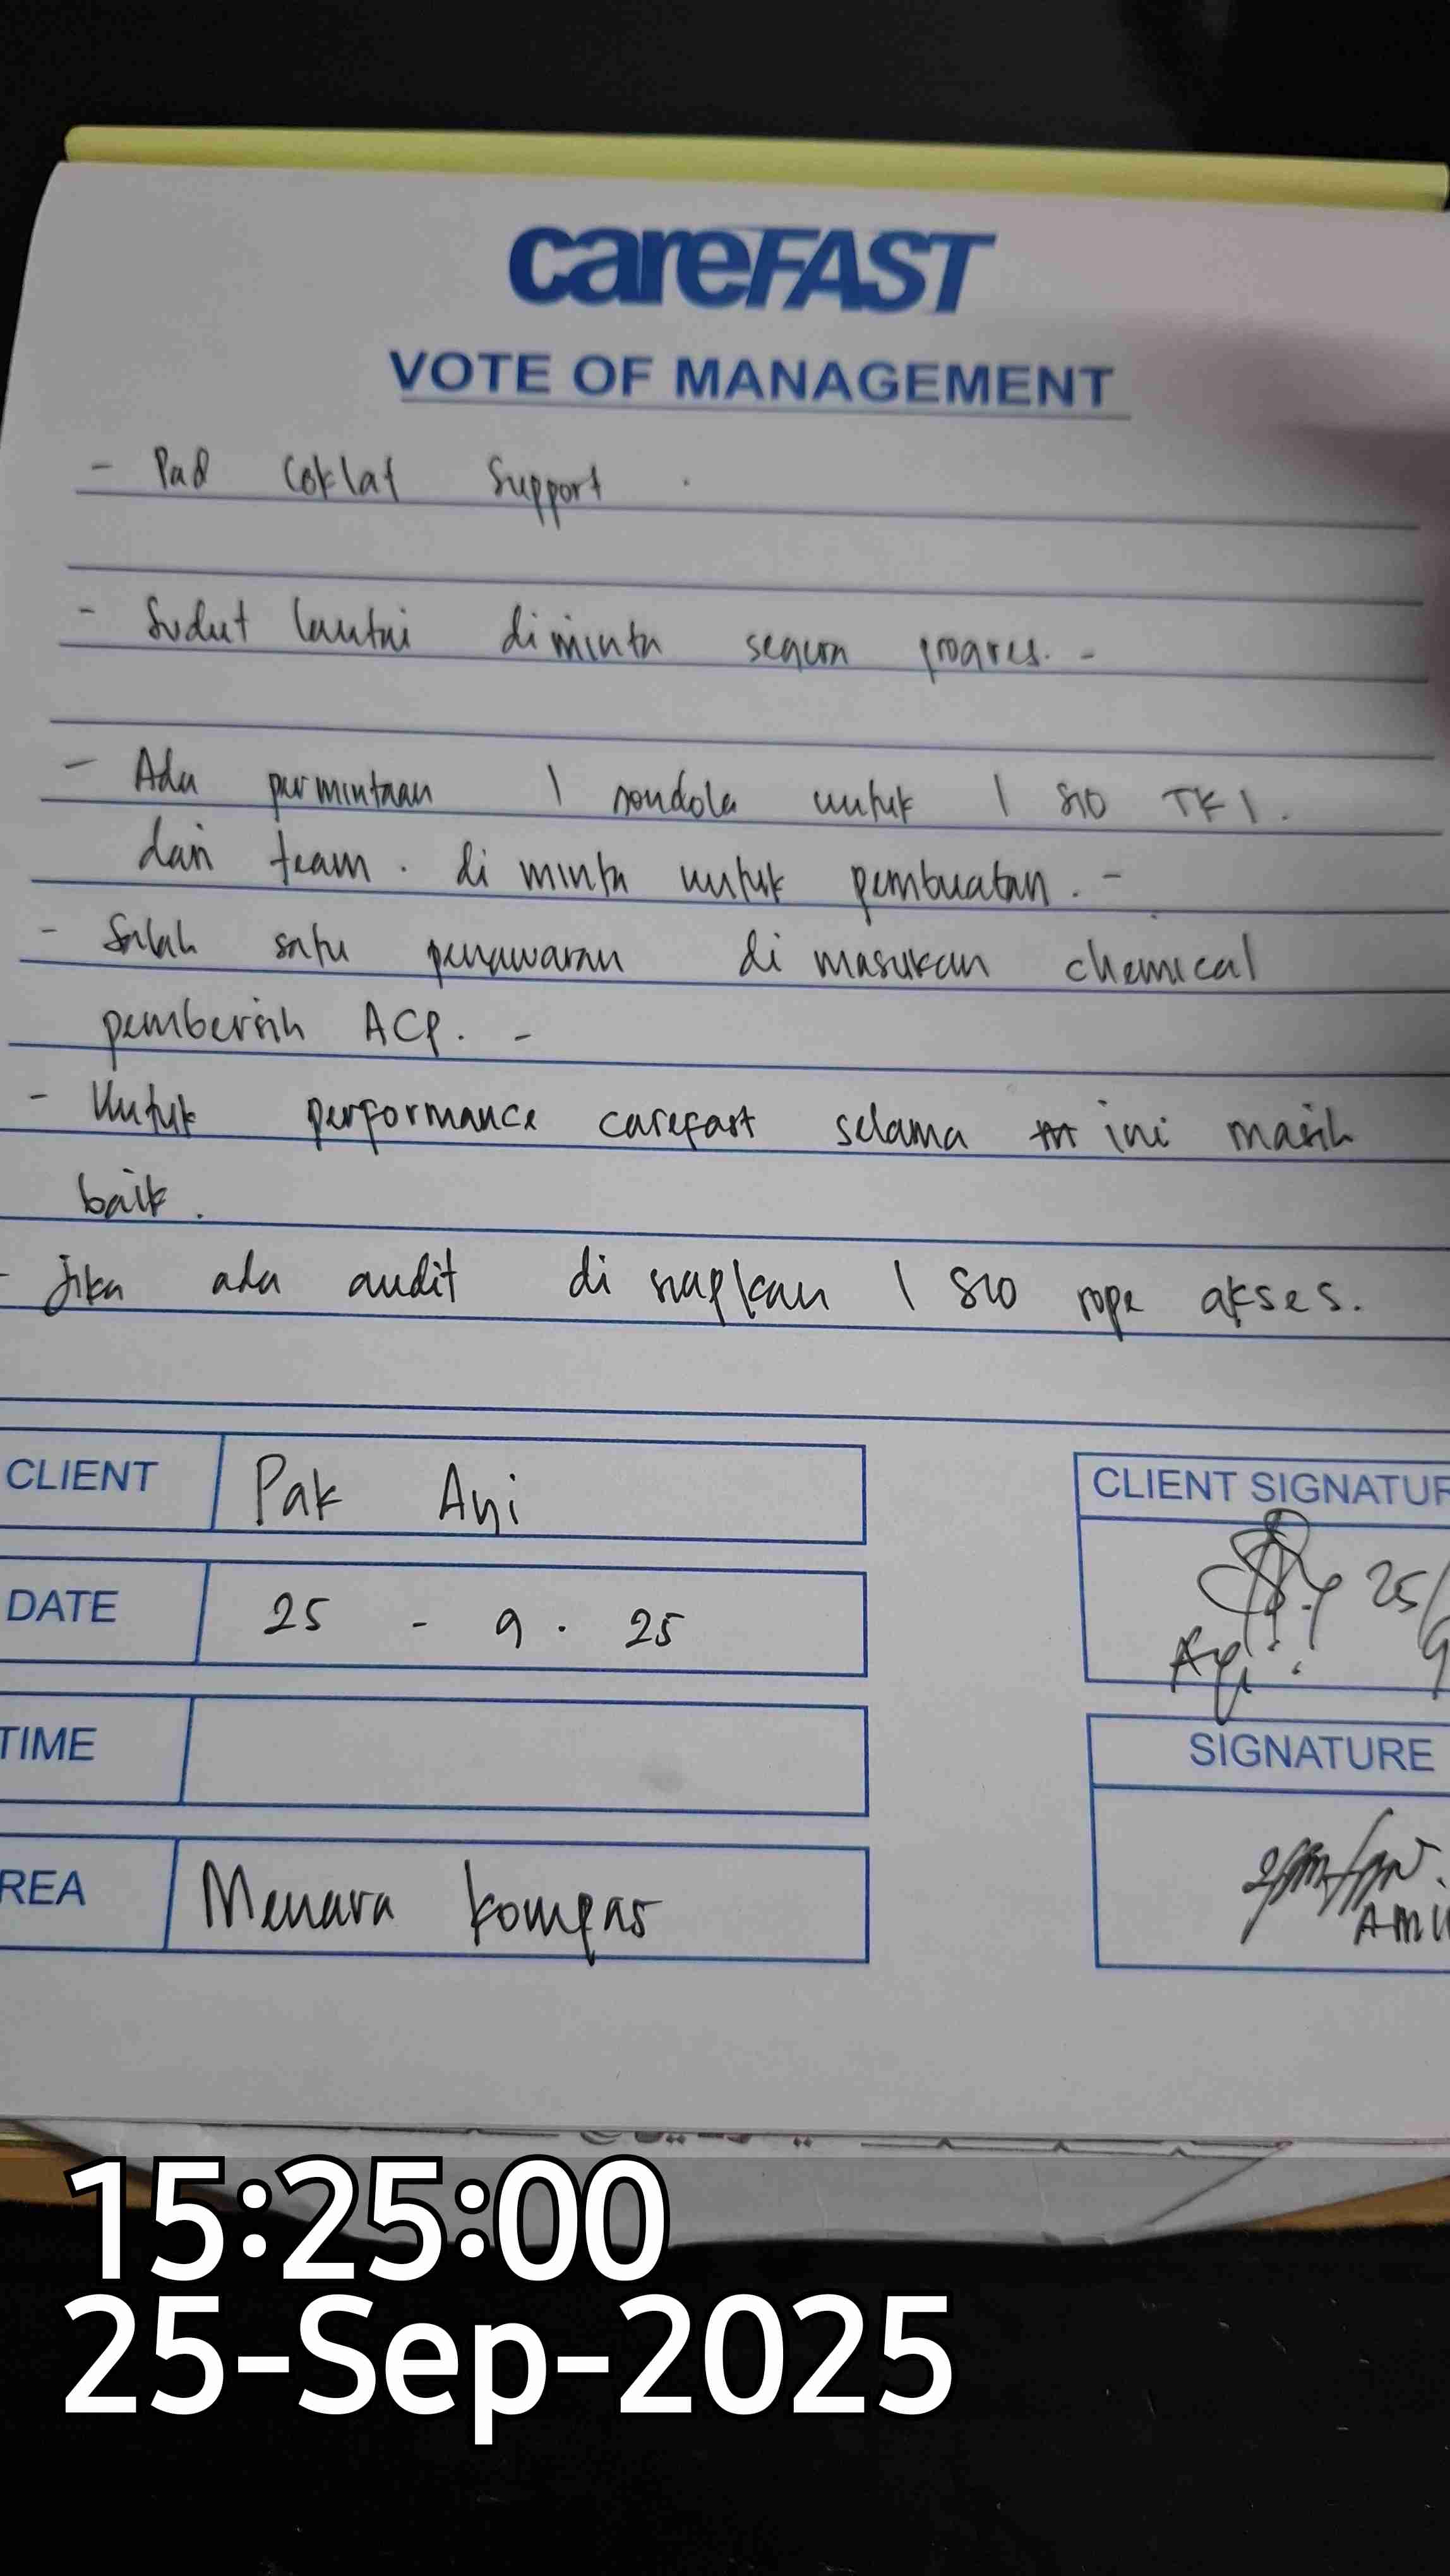 careFAST
VOTE OF MANAGEMENT
- Pad Coklat Support .
- Sudut lantai diminta segera progres. -
- Ada permintaan 1 gondola untuk 1 SIO TK 1.
dari team . di minta untuk pembuatan . -
- Salah satu penawaran di masukan chemical
pembersih ACP. -
- Untuk performance carefast selama ini masih
baik .
- Jika ada audit di siapkan 1 SIO rope akses.
CLIENT Pak Ayi
CLIENT SIGNATUR
25/9
Ayi
DATE 25 - 9 . 25
TIME
SIGNATURE
REA Menara Kompas
15:25:00
25-Sep-2025